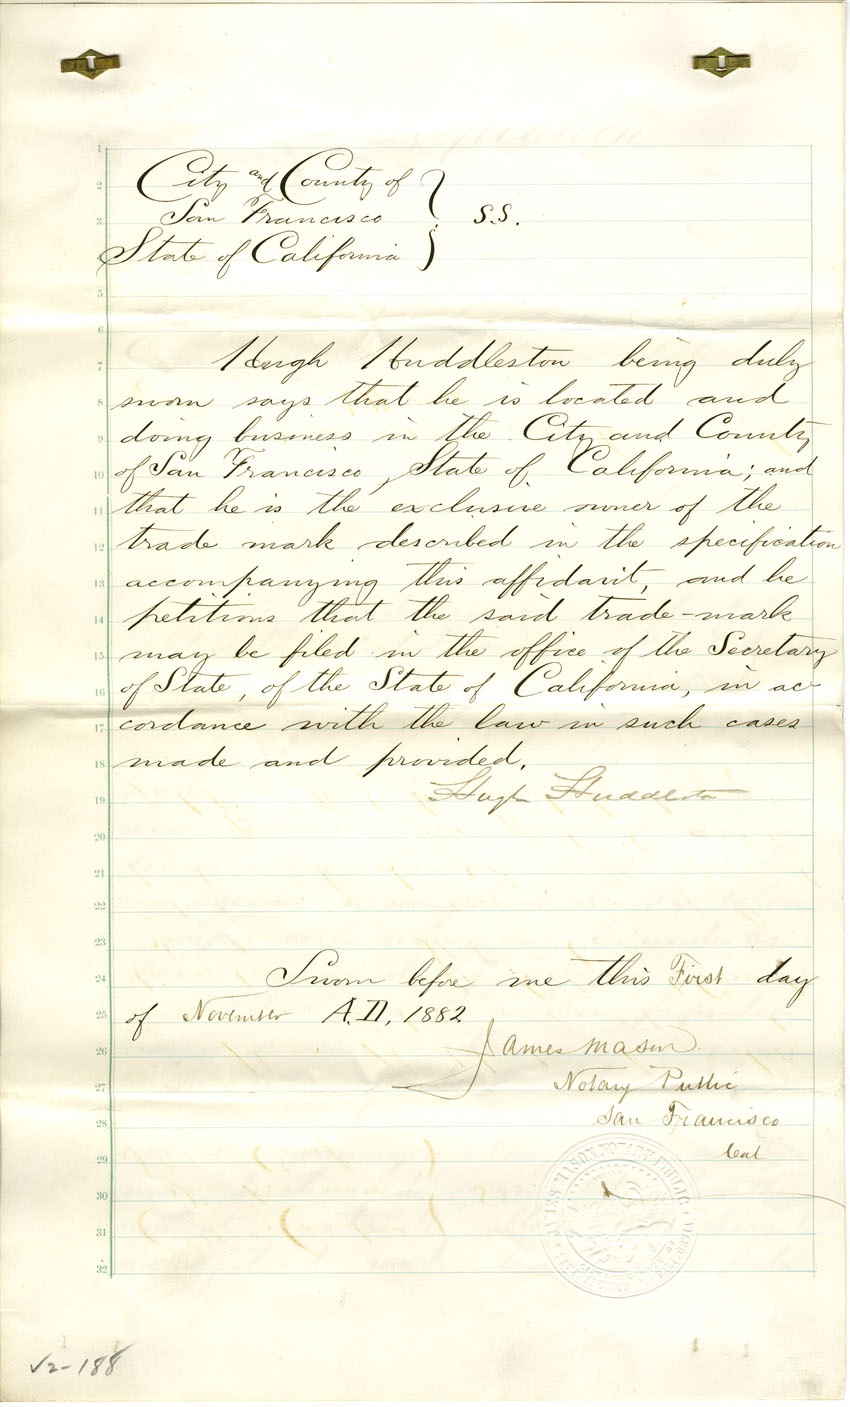 City and County of
San Francisco
State of California
} S.S.
Hugh Huddleston being duly
sworn says that he is located and
doing business in the City and County
of San Francisco, State of California; and
that he is the exclusive owner of the
trade mark described in the specification
accompanying this affidavit, and he
petitions that the said trade-mark
may be filed in the office of the Secretary
of State, of the State of California, in ac-
cordance with the law in such cases
made and provided.
Hugh Huddleston
Sworn before me this First day
of November A.D, 1882
James Mason
Notary Public
San Francisco
Cal
JAMES MASON, NOTARY PUBLIC
√2-188